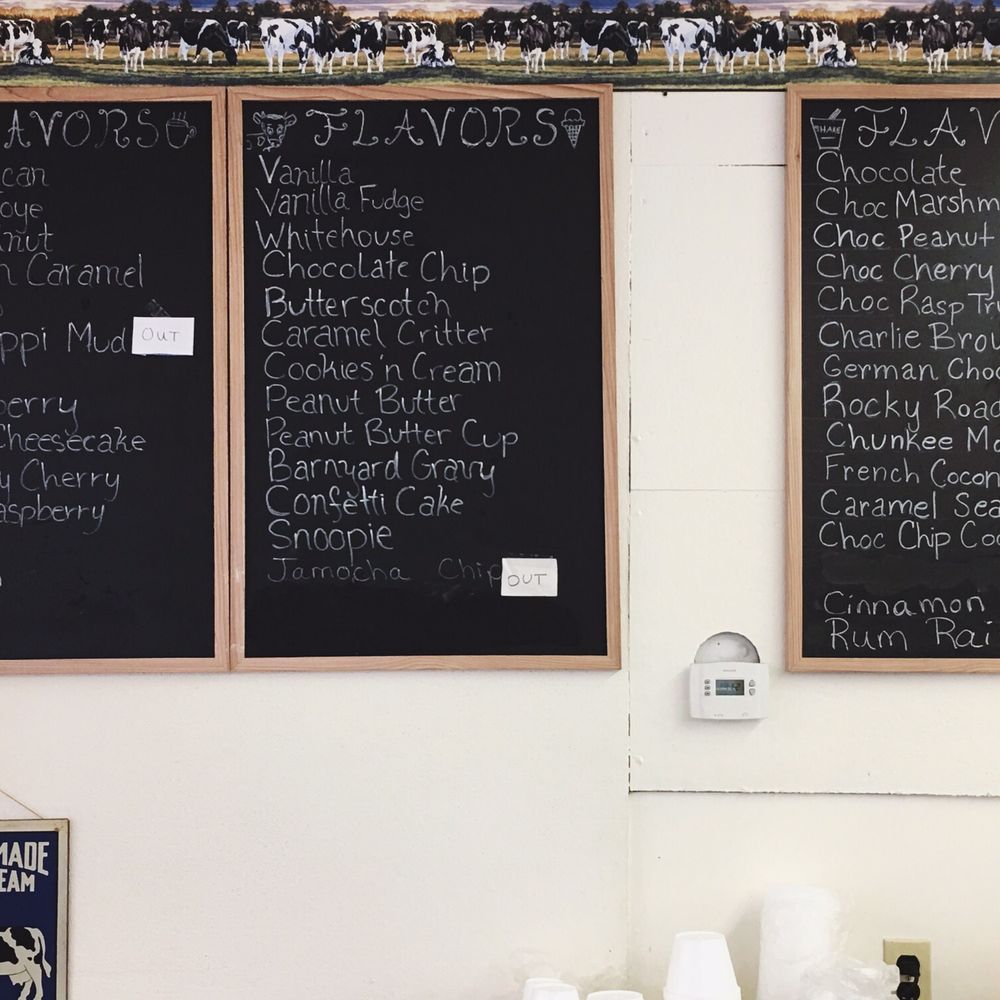 AVORS
can
oye
nut
n Caramel
ppi Mud OUT
berry
Cheesecake
y Cherry
aspberry
FLAVORS
Vanilla
Vanilla Fudge
Whitehouse
Chocolate Chip
Butterscotch
Caramel Critter
Cookies 'n Cream
Peanut Butter
Peanut Butter Cup
Barnyard Gravy
Confetti Cake
Snoopie
Jamocha Chip OUT
SHAKE
FLAV
Chocolate
Choc Marshm
Choc Peanut
Choc Cherry
Choc Rasp Tru
Charlie Brow
German Choc
Rocky Road
Chunkee Mo
French Cocon
Caramel Sea
Choc Chip Coo
Cinnamon
Rum Rai
MADE
EAM